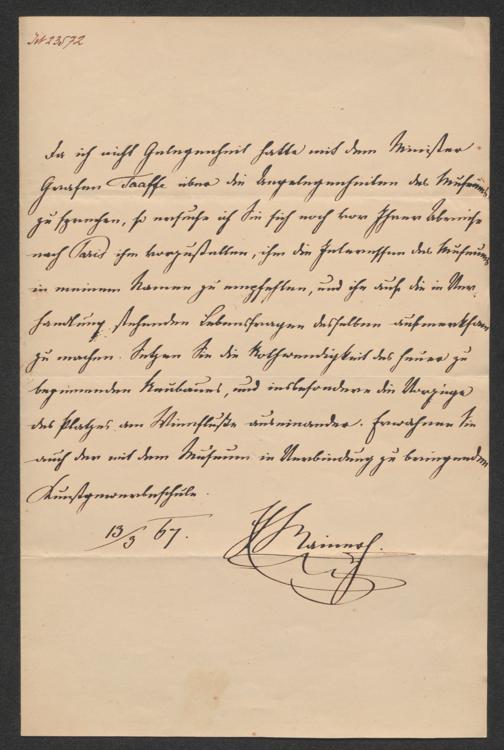 IN 23572
Da ich nicht Gelegenheit hatte mit dem Minister
Grafen Taaffe über die Angelegenheiten des Museums
zu sprechen, so ersuche ich Sie sich noch vor Ihrer Abreise
nach Paris ihm vorzustellen, ihm die Interessen des Museums
in meinem Namen zu empfehlen, und ihn auf die in Ver-
handlung stehenden Lebensfragen desselben aufmerksam
zu machen. Setzen Sie die Nothwendigkeit des heuer zu
beginnenden Neubaues, und insbesondere die Vorzüge
des Platzes am Wienflusse auseinander. Erwähnen Sie
auch der mit dem Museum in Verbindung zu bringenden
Kunstgewerbeschule.
13/3 67.
Rainer